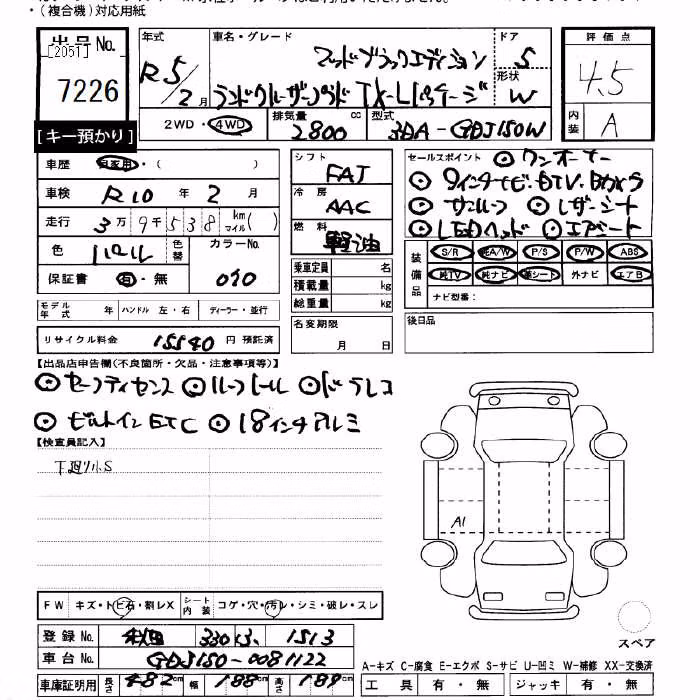 ・(複合機)対応用紙
出品No.
[2051]
7226
[キー預かり]
年式
R5/2月
車名・グレード
マットブラックエディション
ランドクルーザープラド TX-Lパッケージ
ドア
5
形状
W
評価点
4.5
内装
A
2WD・4WD
排気量
2800 cc
型式
3DA-GDJ150W
車歴
自家用・( )
車検 R10年 2月
走行 3万9千538 km マイル( )
色 パール 色替
カラーNo.
070
保証書 有・無
モデル年式 年 ハンドル 左・右 ディーラー・並行
リサイクル料金 15540 円 預託済
シフト FAT
冷房 AAC
燃料 軽油
乗車定員 名
積載量 kg
総重量 kg
名変期限
月 日
セールスポイント ◎ワンオーナー
◎9インチナビ・DTV・Bカメラ
◎サンルーフ ◎レザーシート
◎LEDヘッド ◎エアシート
装備品
S/R 純A/W P/S P/W ABS
純TV 純ナビ 革シート 外ナビ エアB
ナビ型番:
後日品
【出品店申告欄(不良箇所・欠品・注意事項等)】
◎セーフティセンス ◎ルーフレール ◎ドラレコ
◎ビルトインETC ◎18インチアルミ
【検査員記入】
下廻り小S
A1
スペア
FW キズ・トビ石・割レX
シート内装 コゲ・穴・汚レ・シミ・破レ・スレ
登録No. 330 1513
車台No. GDJ150-0081122
車庫証明用 長さ 482cm 幅 188cm 高さ 189cm
A-キズ C-腐食 E-エクボ S-サビ U-凹ミ W-補修 XX-交換済
工具 有・無 ジャッキ 有・無